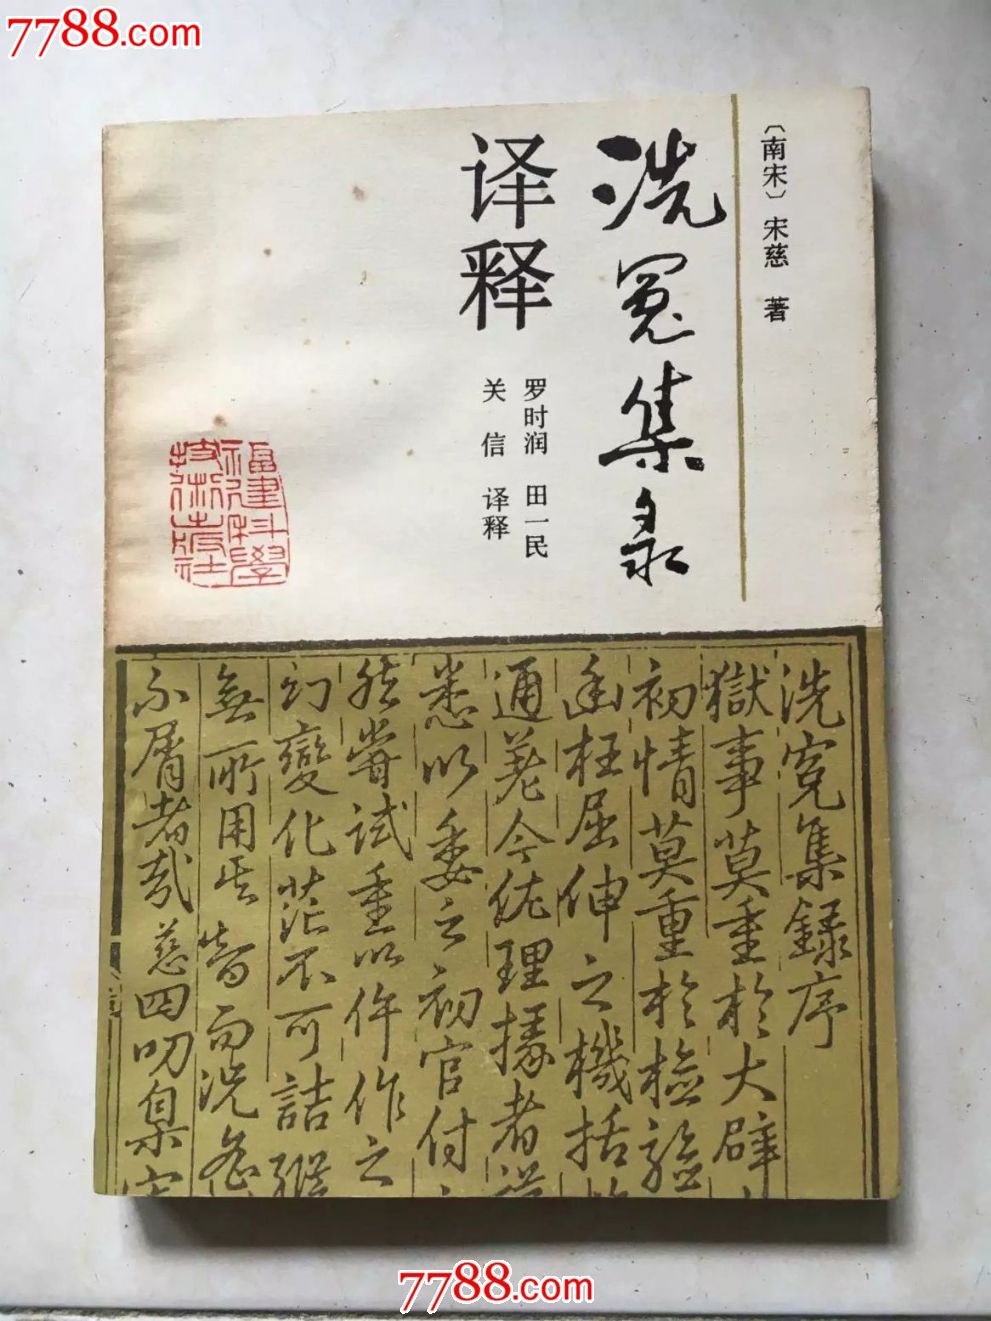 7788.com
〔南宋〕宋慈 著
洗冤集录
译释
罗时润 田一民
关信 译释
福建科學
技術出版社
洗冤集録序
獄事莫重於大辟
初情莫重於檢驗
枉屈伸之機括
通差今佐理掾者
悉以委之初官付
然嘗試重以仵作之
幻變化茫不可詰縱
無所用其智而況
不屑者哉慈四叨臬
7788.com